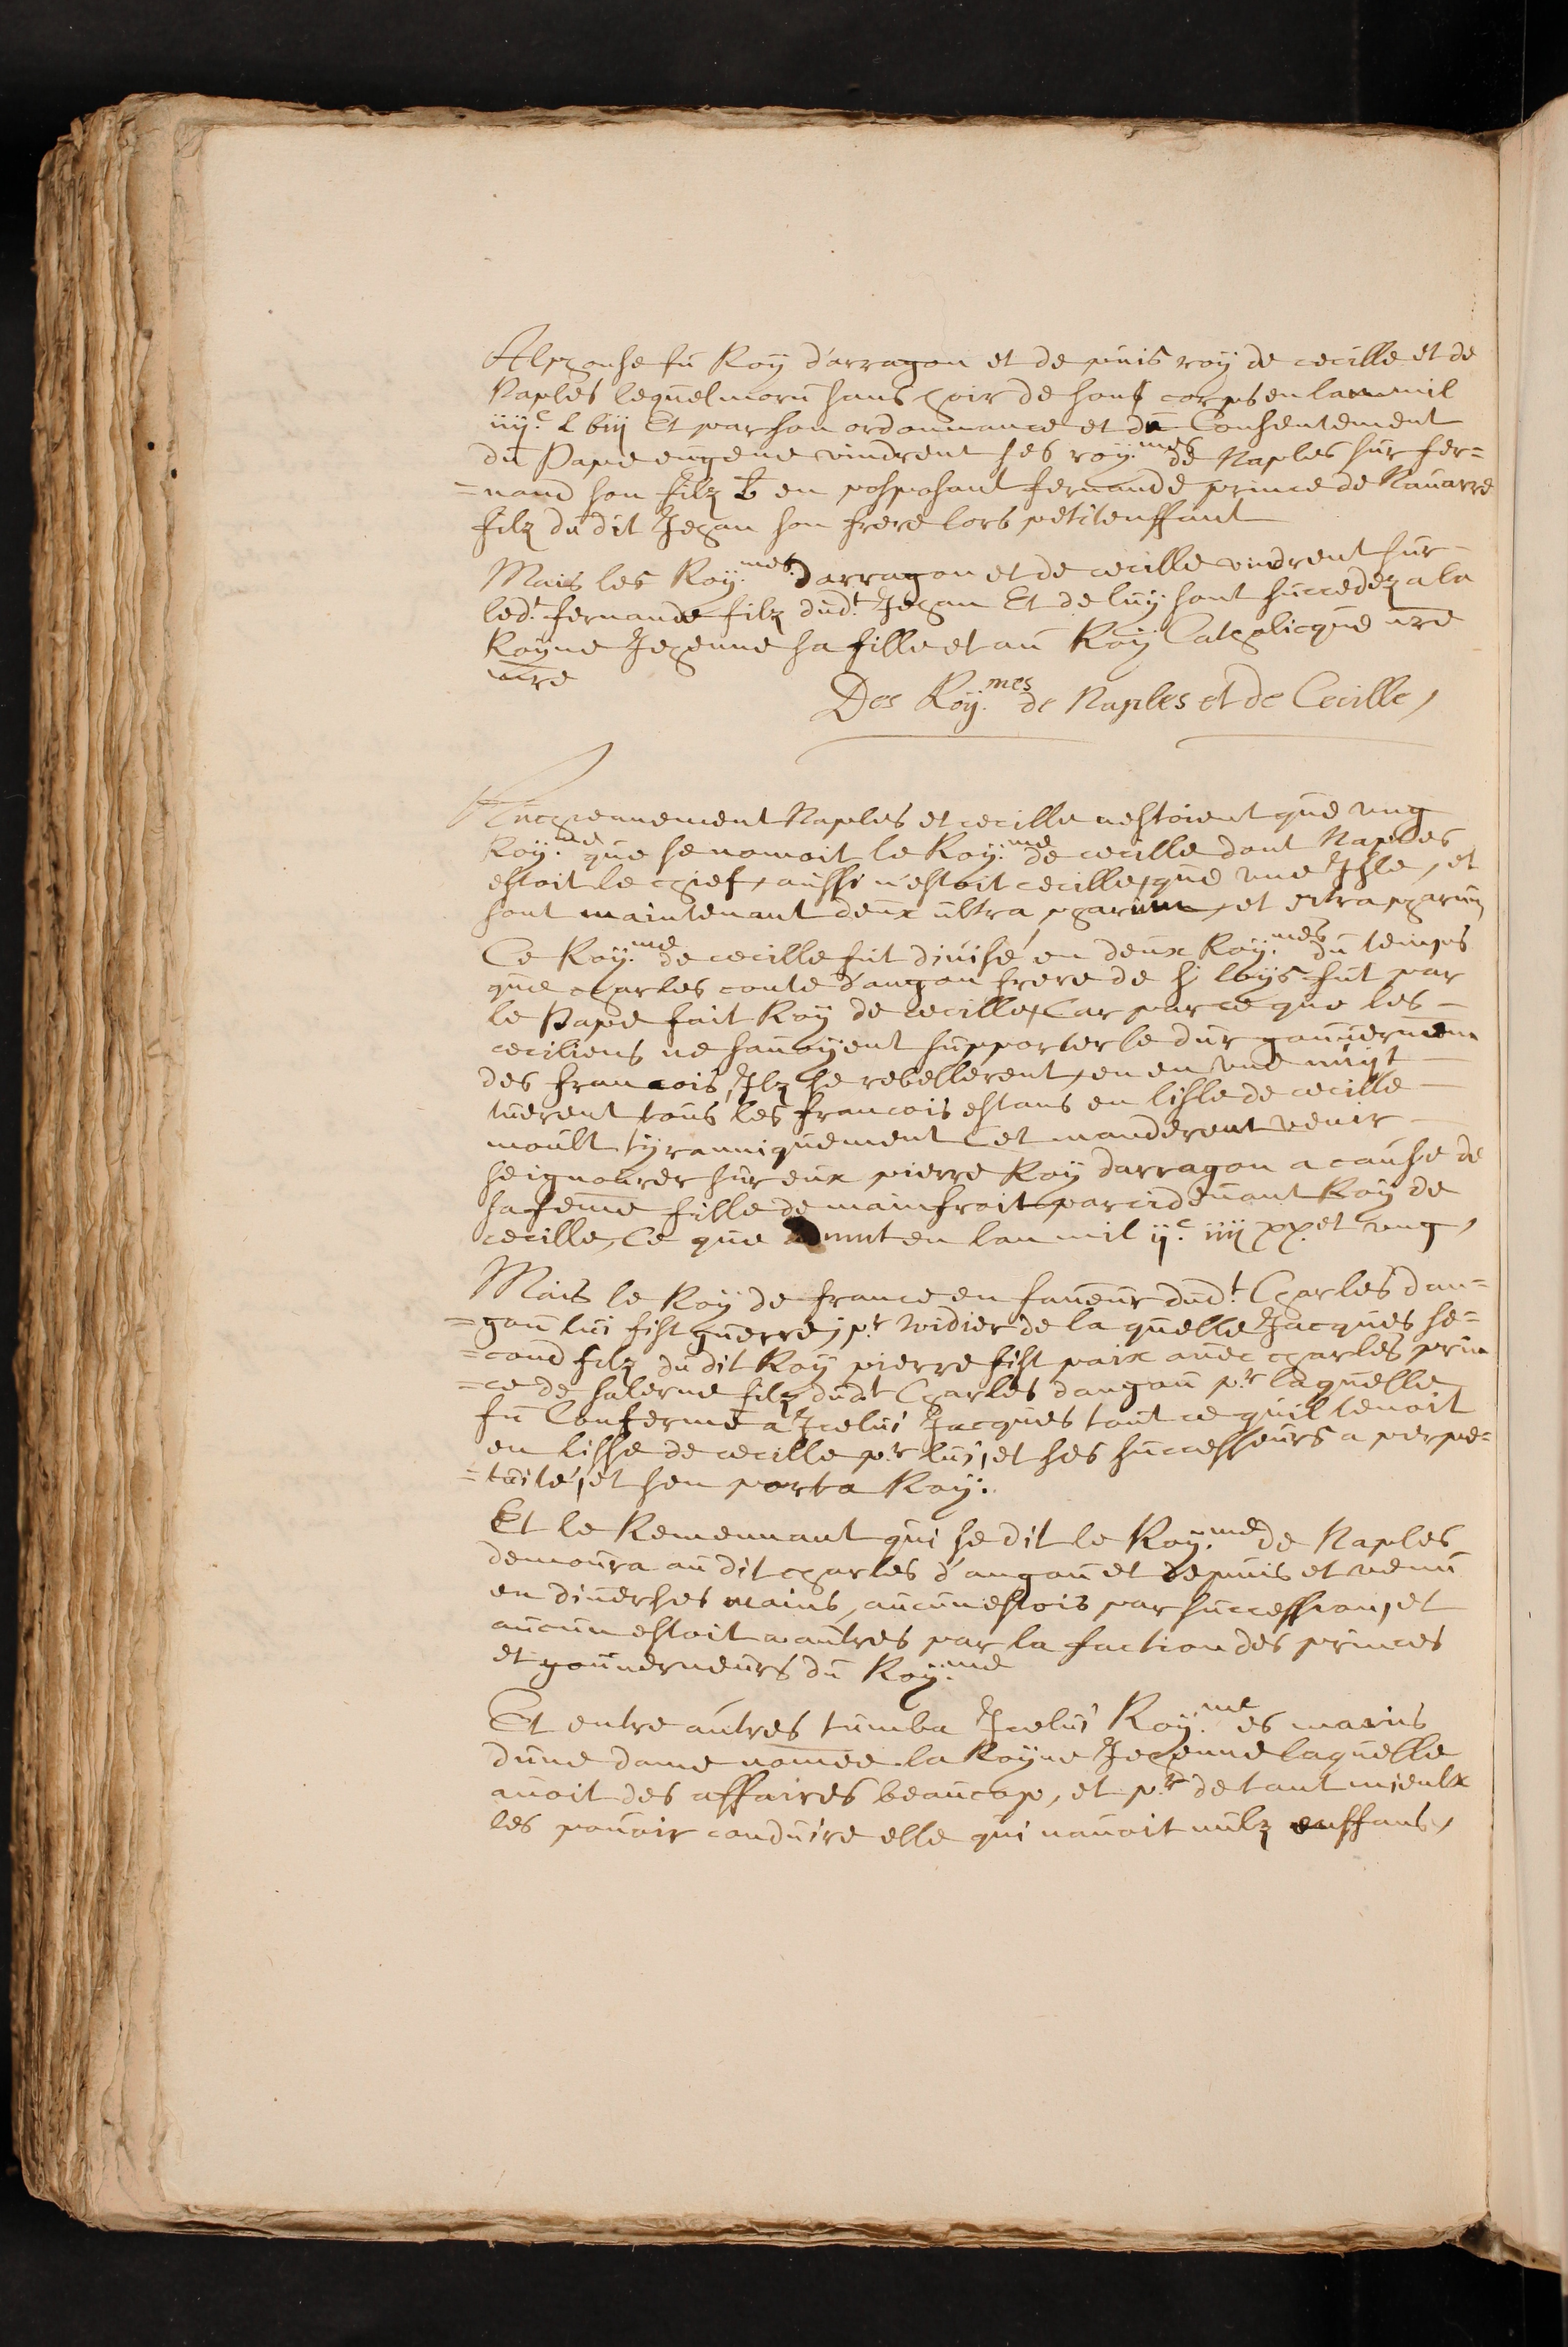 Alphonse fu Roÿ d'arragon et de puis roÿ de cecille et de
Naples lequel moru sans hoir de sont corps en lan mil
iiijc. L biij Et par son ordonnance et du Consentement
du Pape eugene vindrent ses roÿ.mes de Naples sur fer=
=nand son filz b en posposant fernande prince de Nauarre
filz du dit Jehan son frere lors petit enffant
Mais les Roÿ.mes d'arragon et de cecille vindrent sur
led.t fernande filz dud.t Jehan Et de luÿ sont succedez a la
Roÿne Jehenne sa fille et au Roÿ Catholicque nre
sire
Des Roÿ.mes de Naples et de Cecille,
Anchiennement Naples et cecille n'estoient que vng
Roÿ.me que se nomoit le Roÿ.me de cecille dont Naples
estoit le chief, aussi n'estoit cecille, que vne Isle, et
sont maintenant deux ultra pharum, et citra pharum
Ce Roÿ.me de cecille fut diuisé en deux Roÿ.mes du temps
que charles conte d'angou frere de S.t loÿs fut par
le Pape fait Roÿ de cecille, Car par ce que les
ceciliens ne sauoÿent supporter le dur gouuernem.
des francois, Ilz se rebellerent, en en vne nuÿt
tuerent tous les francois estans en lisle de cecille
moult tÿranniquement et manderent venir
seignourer sur eux pierre Roÿ darragon a cause de
sa feme fille de mainfroit parcideuant Roÿ de
cecille, Ce que auint en lan mil ijc. iiij xx. et vng,
Mais le Roÿ de france en faueur dud.t Charles dan=
=gou lui fist guerre, p.r widier de la quelle Jacques se=
=cond filz du dit Roÿ pierre fist paix auec charles prin
=ce de salerne filz dud.t Charles dangou p.r laquelle
fu Conferme a Icelui Jacques tout ce quil tenoit
en lisle de cecille p.r lui, et ses successeurs a perpe=
=tuité, et sen porta Roÿ.
Et le Remennant qui se dit le Roÿ.me de Naples
demoura au dit charles d'angou et depuis et venu
en diuerses mains, aucunesfois par succession, et
aucunesfoit a autres par la faction des princes
et gouuerneurs du Roÿ.me
Et entre autres tumba Icelui Roÿ.me es mains
dune dame nomee la Roÿne Jehenne laquelle
auoit des affaires beaucop, et p.r de tant mieulx
les pouoir conduire elle qui nauoit nulz enffans,